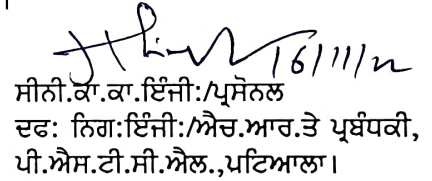 16/11/22
ਸੀਨੀ.ਕਾ.ਕਾ.ਇੰਜੀ:/ਪ੍ਰਸੋਨਲ
ਦਫ: ਨਿਗ:ਇੰਜੀ:/ਐਚ.ਆਰ.ਤੇ ਪ੍ਰਬੰਧਕੀ,
ਪੀ.ਐਸ.ਟੀ.ਸੀ.ਐਲ.,ਪਟਿਆਲਾ।